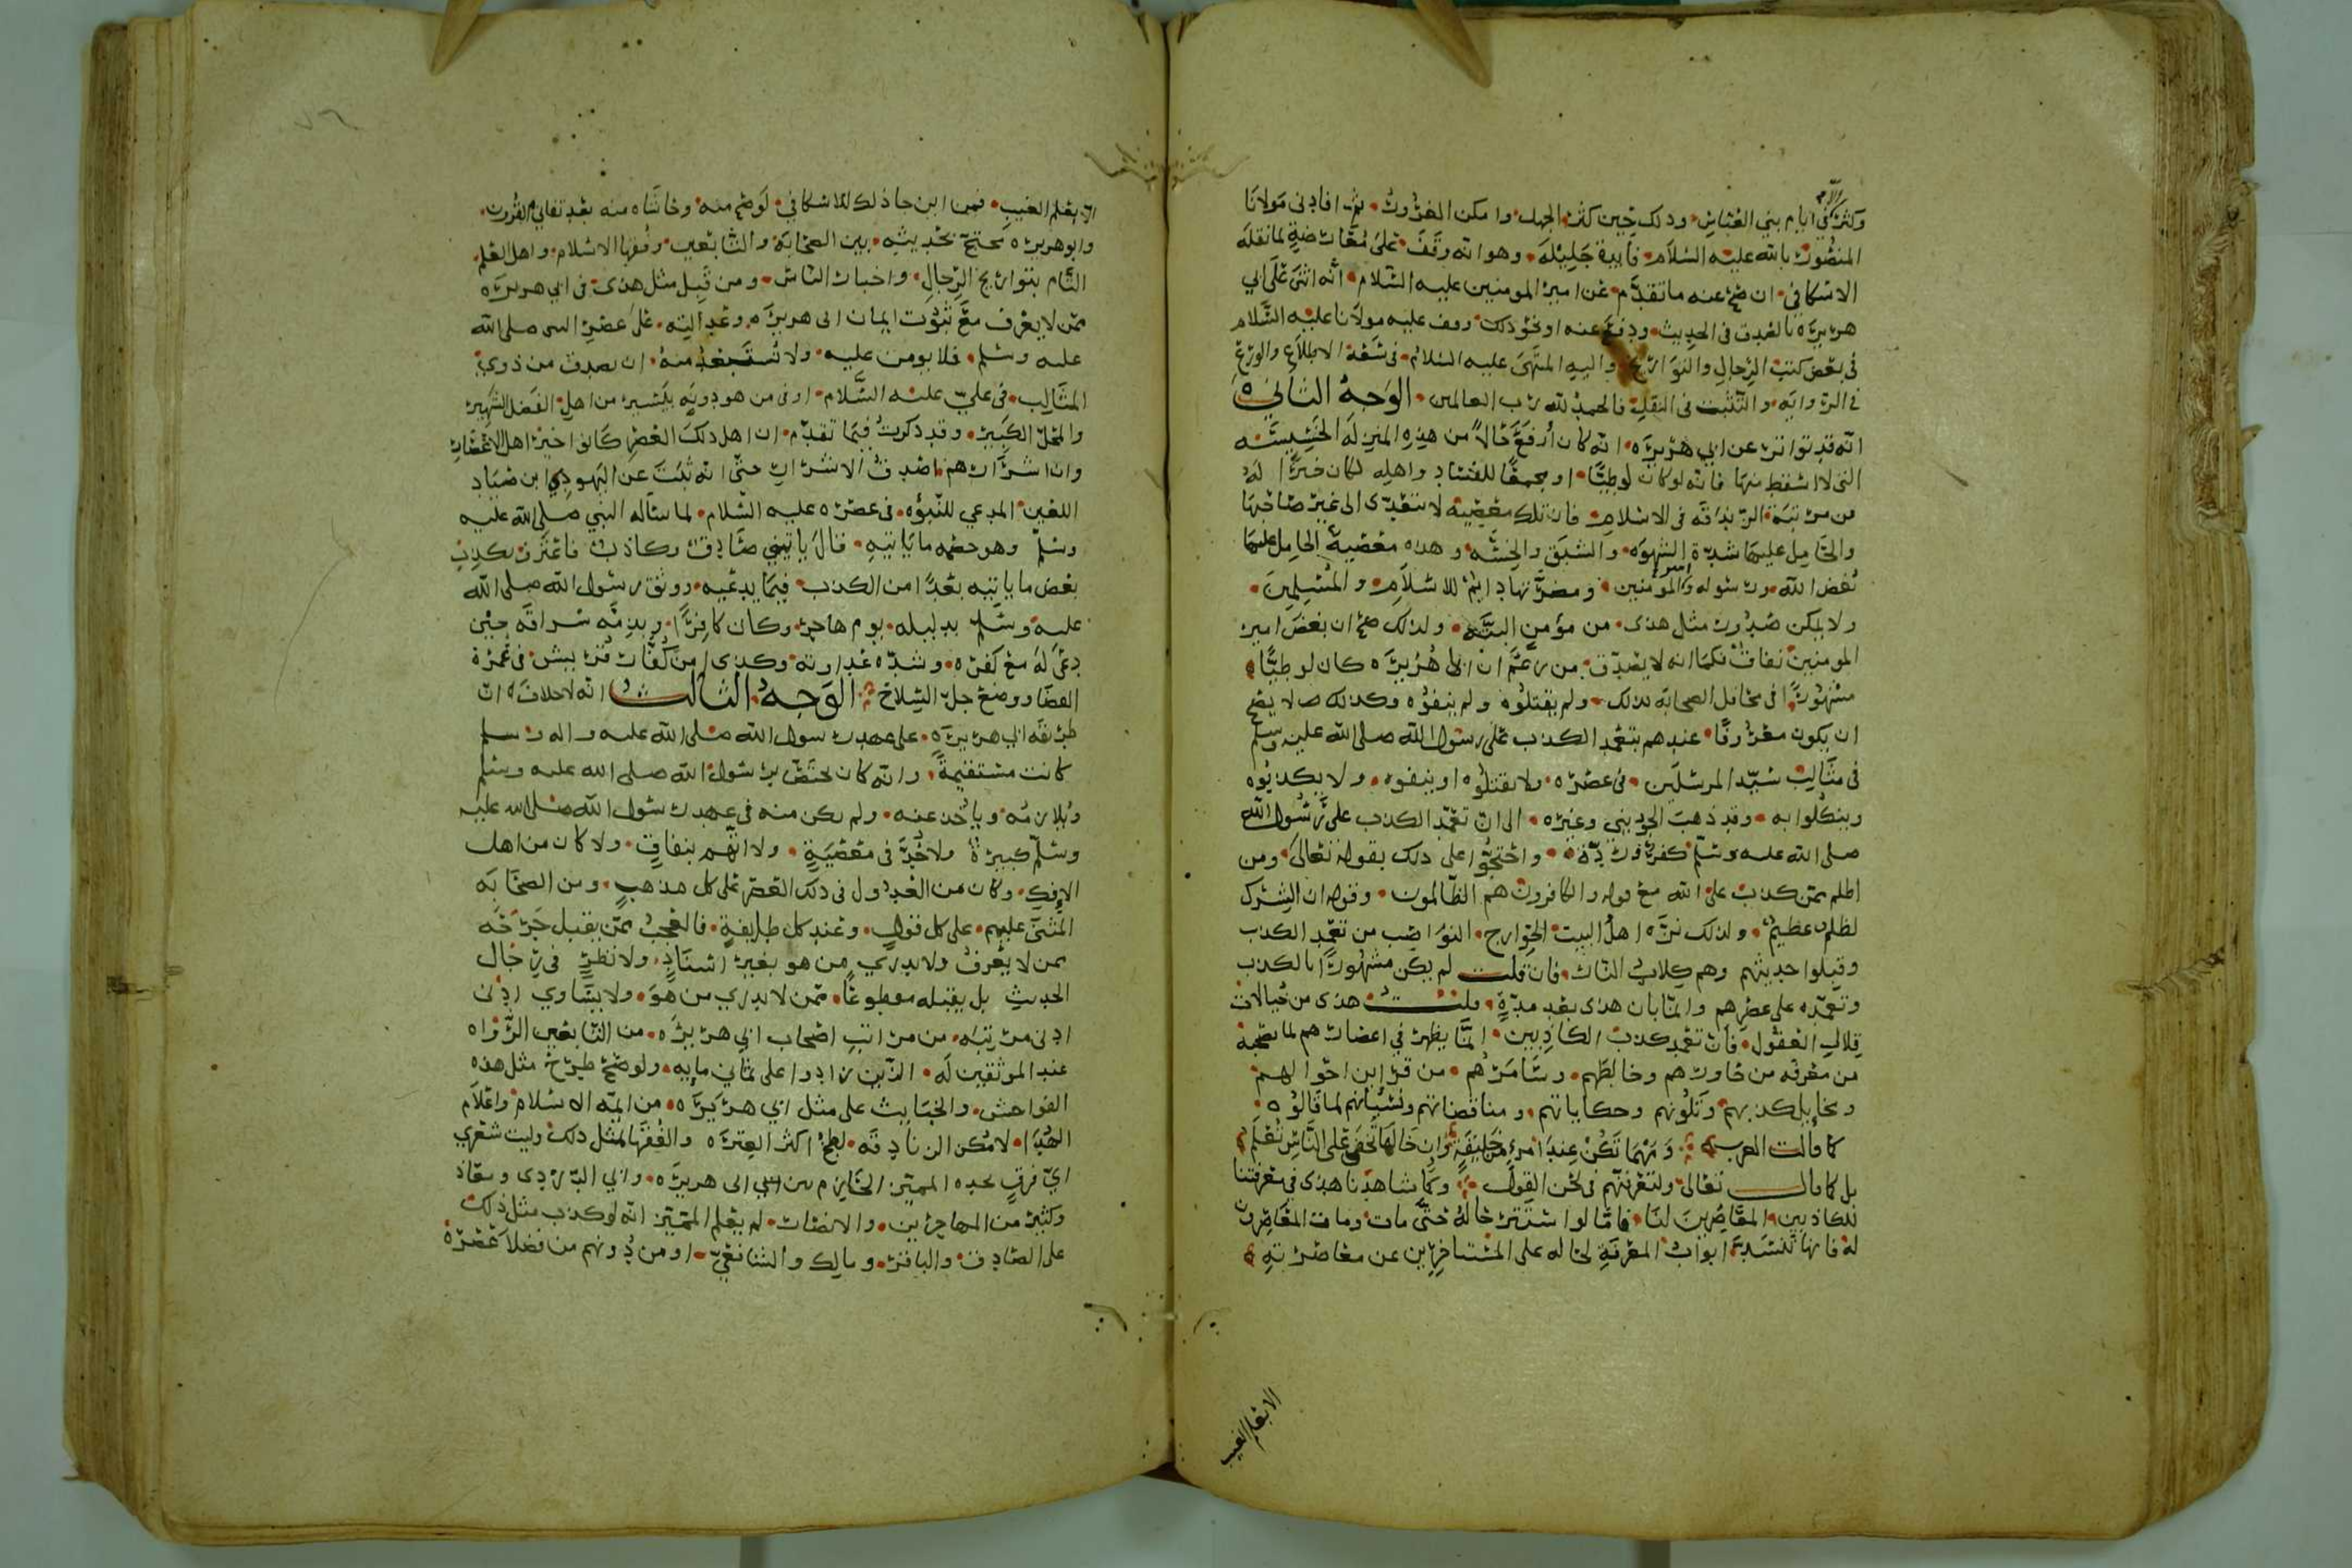 وكثرت في ايام بني العباس ودلك حين كثر الجهل وامكن المغرور ثم افادني مولانا
المنصور بالله عليه السلام فايدة جليلة وهو انه وقف على معارضة لما نقله
الاسكافي ان صح عنه ما تقدم عن امير المومنين عليه السلام انه اثنى على ابي
هريرة بالصدق في الحديث ودفع عنه او نحو ذلك وقف عليه مولانا عليه السلام
في بعض كتب الرجال والتواريخ واليه المنتهى عليه السلام في سعة الاطلاع والورع
في الرواية والتثبت في النقل فالحمد لله رب العالمين الوجه الثاني
انه قد تواتر عن ابي هريرة انه كان ارفع حالا من هذه المنزلة الخسيسة
التي لا اسقط منها فانه لو كان لوطيا او مجمعا للفساد واهله لكان خيرا له
من مرتبة الزندقة في الاسلام فان تلك معصية لا تتعدى الى غير صاحبها
والحامل عليها شدة الشهوة والشبق والخسة وهذه معصية الحامل عليها
بغض الله ورسوله والمومنين ومضرتها دايم للاسلام والمسلمين
ولا يمكن صدور مثل هذى من مؤمن البتة ولذلك صح ان بغض امير
المومنين نفاق فكما انه لا يصدق من زعم ان ابا هريرة كان لوطيا
مشهورا في محافل الصحابة بذلك ولم يقتلوه ولم ينفوه وكذلك لا يصح
ان يكون معروفا عندهم بتعمد الكذب على رسول الله صلى الله عليه وسلم
في مثالب سيد المرسلين في عصره ولا يقتلوه او ينفوه ولا يكذبوه
وينكلوا به وقد ذهب الجويني وغيره الى ان تعمد الكذب على رسول الله
صلى الله عليه وسلم كفر وردة واحتجوا على ذلك بقوله تعالى ومن
اظلم ممن كذب على الله مع قوله والكافرون هم الظالمون وقوله ان الشرك
لظلم عظيم ولذلك نزه اهل البيت الخوارج النواصب من تعمد الكذب
وقبلوا حديثهم وهم كلاب النار فان قلت لم يكن مشهورا بالكذب
وتعمده على عصرهم وانما بان هذى بعد مدة قلت هذى من خيالات
قلال العقول فان تعمد كذب الكاذبين انما يظهر في اعصارهم لما يصحبه
من معرفة من جاورهم وخالطهم وسامرهم من قراين احوالهم
ومخايل كذبهم وتلونهم وحكاياتهم ومناقضاتهم ونسيانهم لما قالوه
كما قالت العرب ومهما تكن عند امرء من خليقة وان خالها تخفى على الناس تعلم
بل كما قال تعالى ولتعرفنهم في لحن القول وكما شاهدنا هذى في معرفتنا
للكاذبين المعاصرين لنا فاما لو استتر حاله حتى مات ومات المعاصرون
له فانها تنسد ابواب المعرفة لحاله على المستاخرين عن معاصرته
الا بعلم الغيب
الا بعلم الغيب فمن اين جا ذلك للاسكافي لو صح منه وحاشاه منه بعد تفاني القرون
وابو هريرة محتج بحديثه بين الصحابة والتابعين وفقها الاسلام واهل العلم
التام بتواريخ الرجال واخبار الناس ومن قبل مثل هذى في ابي هريرة
ممن لا يعرف مع ثبوت ايمان ابي هريرة وعدالته على عصر النبي صلى الله
عليه وسلم فلا يومن عليه ولا تستبعد منه ان يصدق من ذوي
المثالب في علي عليه السلام او في من هو دونه بيسير من اهل الفضل الشهير
والمحل الكبير وقد ذكرت فيما تقدم ان اهل ذلك العصر كانوا خير اهل الاعصار
وان اشرارهم اصدق الاشرار حتى انه ثبت عن اليهودي ابن صياد
اللعين المدعي للنبوه في عصره عليه السلام لما ساله النبي صلى الله عليه
وسلم وهو خصمه ما ياتيه قال ياتيني صادق وكاذب فاعترف بكذب
بعض ما ياتيه بعدا من الكذب فيما يدعيه ووثق رسول الله صلى الله
عليه وسلم بدليله يوم هاجر وكان كافرا وبذمة سراقة حين
دعى له مع كفره وشدة عداوته وكذى امن كفار قريش في عمرة
القضا ووضع جل السلاح الوجه الثالث انه لا خلاف ان
طريقة ابي هريرة على عهد رسول الله صلى الله عليه واله وسلم
كانت مستقيمة وانه كان يختص برسول الله صلى الله عليه وسلم
ويلازمه وياخذ عنه ولم يكن منه في عهد رسول الله صلى الله عليه
وسلم كبيرة ولا حد في معصية ولا اتهم بنفاق ولا كان من اهل
الافك وكان من العدول في ذلك العصر على كل مذهب ومن الصحابة
المثنى عليهم على كل قول وعند كل طايفة فالعجب ممن يقبل جرحه
ممن لا يعرف ولا يدري من هو بغير اسناد ولا نظر في رجال
الحديث بل يقبله مقطوعا ممن لا يدري من هو ولا يساوي ادنى
ادنى مرتبة من مراتب اصحاب ابي هريرة من التابعين الرواه
عند الموثقين له الذين زادوا على ثماني مايه ولو صح طرح مثل هذه
الفواحش والخبايث على مثل ابي هريرة من ايمة الاسلام واعلام
الهدا لامكن الزنادقة لطخ اكثر العترة والفقها بمثل ذلك وليت شعري
اي فرق يجده المميز الحازم بين ابي هريرة وابي الدردى ومعاذ
وكثير من المهاجرين والانصار لم يعلم المميز انه لو كذب مثل ذلك
على الصادق والباقر ومالك والشافعي او من دونهم من فضلا عصره